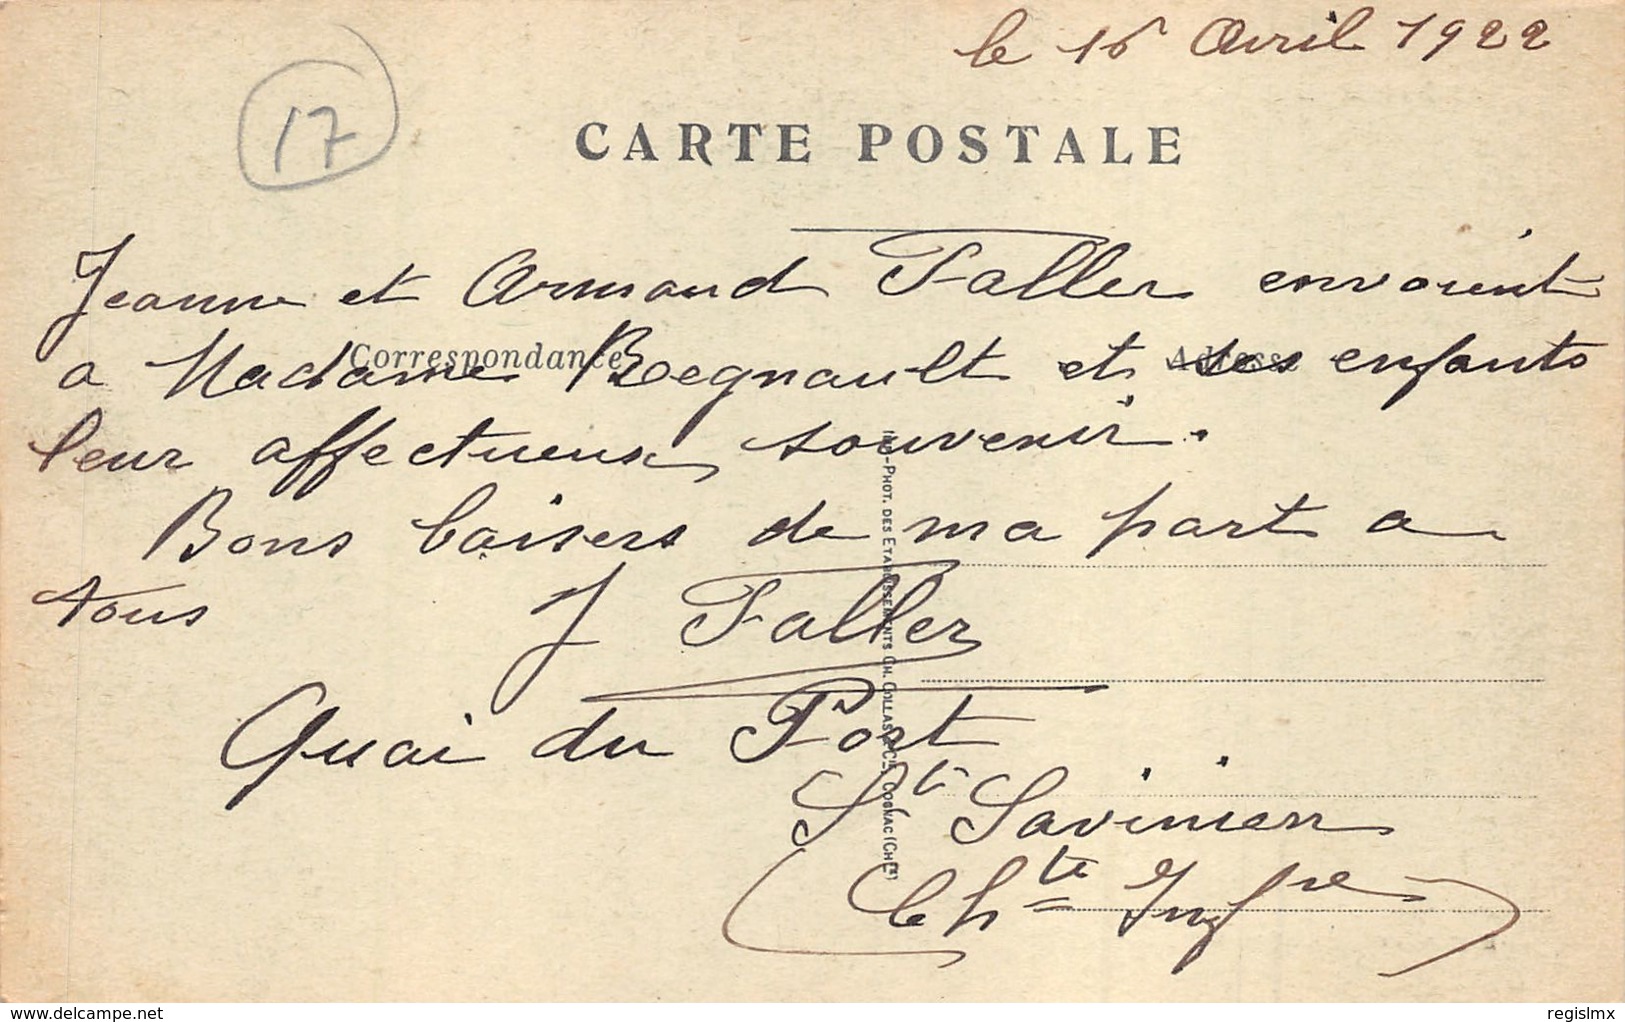 le 16 Avril 1922
17
CARTE POSTALE
Jeanne et Armand Faller envoient
a Madame Regnault et ses enfants
Correspondance
Adresse
leur affectueux souvenir.
Bons baisers de ma part a
tous
J Faller
Quai du Port
St Savinien
(Chte Infre)
IMP.-PHOT. DES ETABLISSEMENTS CH. COLLAS & Cie COGNAC (Chte)
www.delcampe.net
regislmx